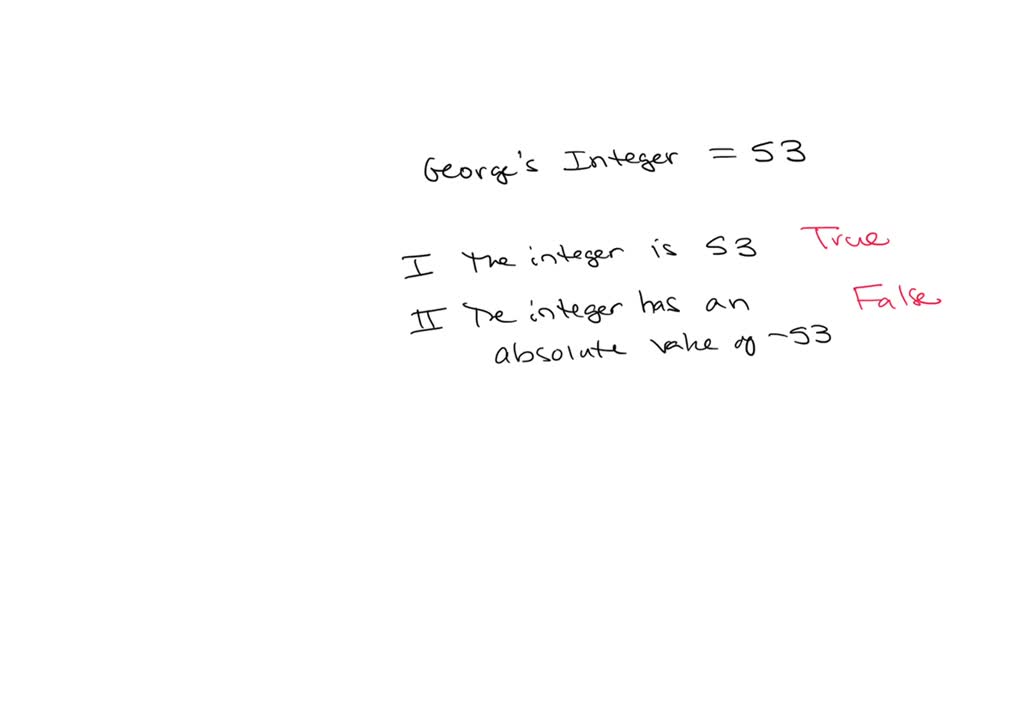 George's Integer = 53
I The integer is 53 True
II The integer has an False
absolute value of -53